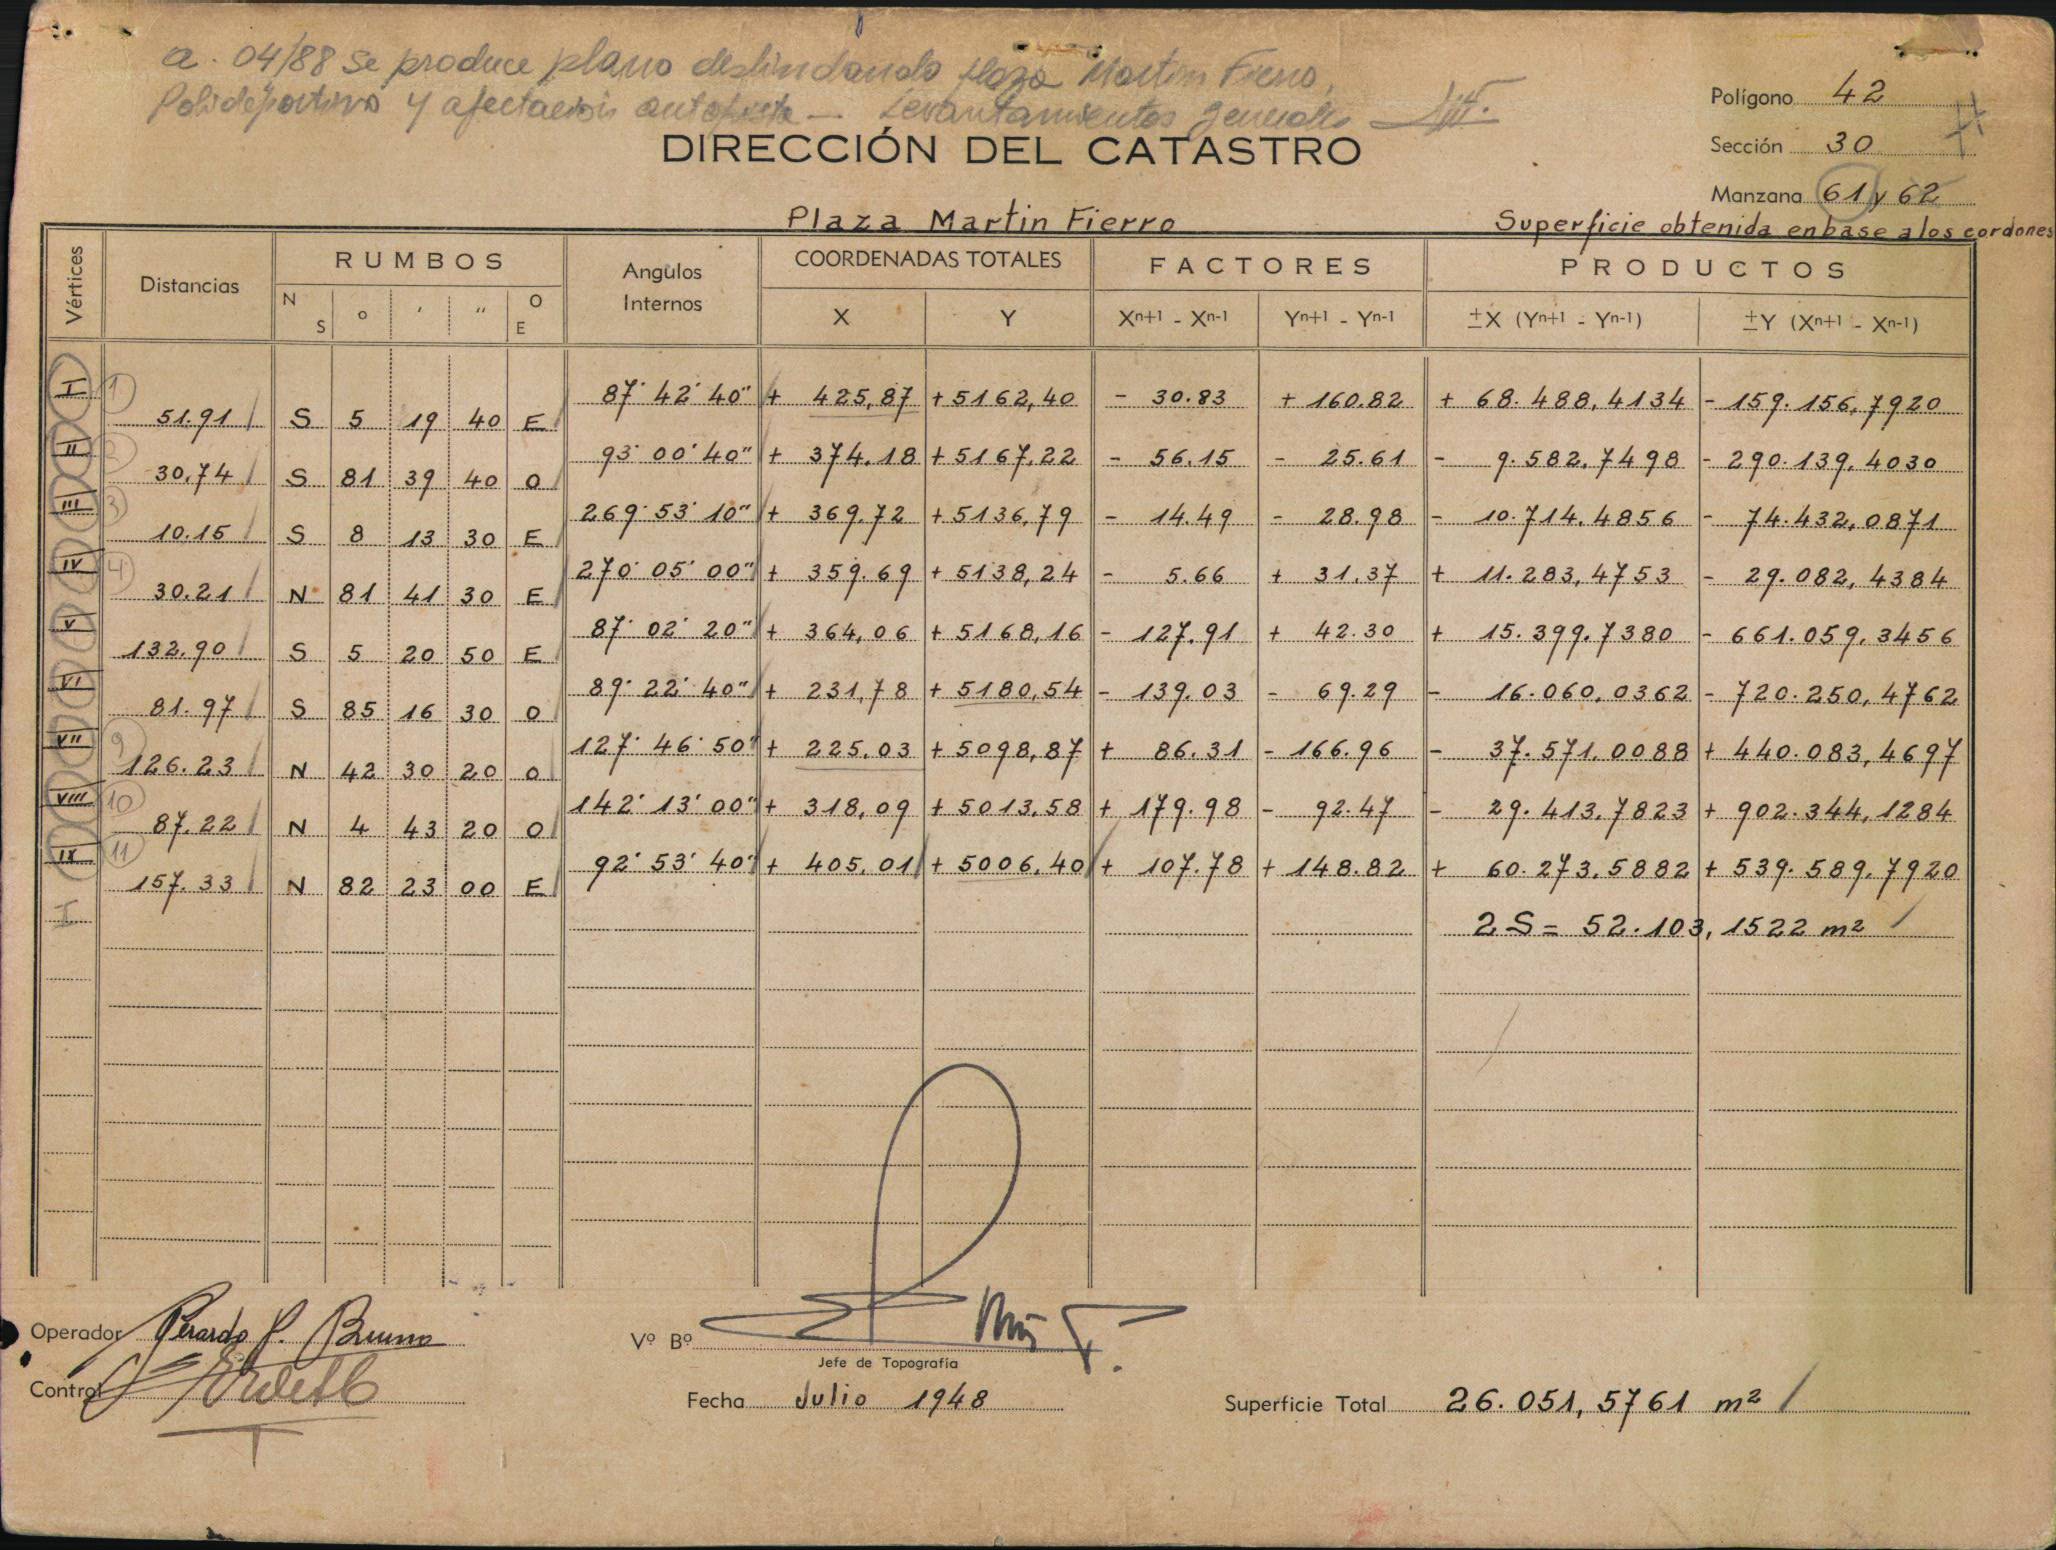 a. 04/88 se produce plano deslindando plaza Martin Fierro,
Polideportivo y afectación autopista — Levantamientos generales
DIRECCIÓN DEL CATASTRO
Polígono 42
Sección 30
Manzana 61 y 62
Plaza Martin Fierro
Superficie obtenida en base a los cordones
Vértices Distancias RUMBOS Angulos Internos COORDENADAS TOTALES FACTORES PRODUCTOS
N S ° ' " O E X Y Xⁿ⁺¹ - Xⁿ⁻¹ Yⁿ⁺¹ - Yⁿ⁻¹ ±X (Yⁿ⁺¹ - Yⁿ⁻¹) ±Y (Xⁿ⁺¹ - Xⁿ⁻¹)
I 1 87° 42' 40" + 425,87 +5162,40 - 30.83 + 160.82 + 68.488,4134 - 159.156,7920
51.91 S 5 19 40 E
II 2 93° 00' 40" + 374.18 +5167,22 - 56.15 - 25.61 - 9.582,7498 - 290.139,4030
30,74 S 81 39 40 O
III 3 269° 53' 10" + 369.72 +5136,79 - 14.49 - 28.98 - 10.714.4856 - 74.432,0871
10.15 S 8 13 30 E
IV 4 270° 05' 00" + 359.69 +5138,24 - 5.66 + 31.37 + 11.283,4753 - 29.082,4384
30.21 N 81 41 30 E
V 87° 02' 20" + 364,06 +5168,16 - 127.91 + 42.30 + 15.399.7380 - 661.059,3456
132.90 S 5 20 50 E
VI 89° 22' 40" + 231,78 +5180,54 - 139.03 - 69.29 - 16.060,0362 - 720.250,4762
81.97 S 85 16 30 O
VII 9 127° 46' 50" + 225,03 +5098,87 + 86.31 - 166.96 - 37.571,0088 + 440.083,4697
126.23 N 42 30 20 O
VIII 10 142° 13' 00" + 318,09 +5013,58 + 179.98 - 92.47 - 29.413,7823 + 902.344,1284
87.22 N 4 43 20 O
IX 11 92° 53' 40" + 405,01 +5006,40 + 107.78 + 148.82 + 60.273,5882 + 539.589,7920
157.33 N 82 23 00 E
I
2 S = 52.103,1522 m²
Operador Gerardo P. Bruno
Vº Bº
Jefe de Topografía
Control
Fecha Julio 1948
Superficie Total 26.051,5761 m²